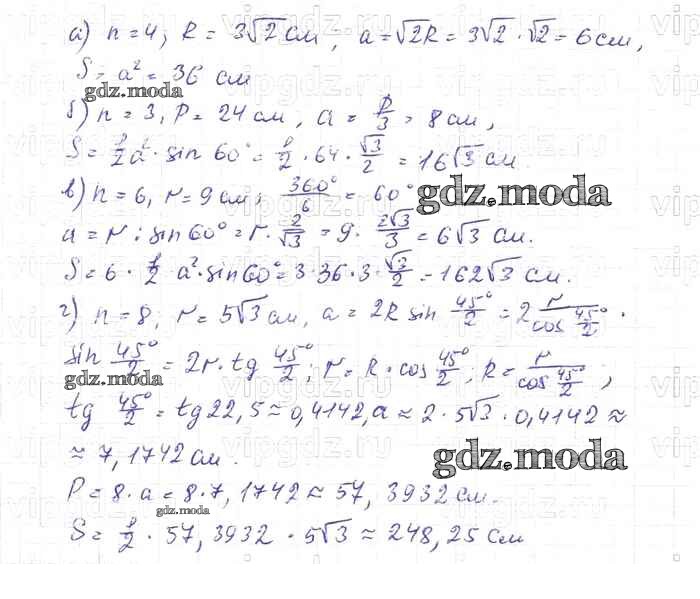 а) n = 4, R = 3√2 см, a = √2R = 3√2 · √2 = 6 см,
S = a² = 36 см
gdz.moda
б) n = 3, P = 24 см, a = P/3 = 8 см,
S = 1/2 a² · sin 60° = 1/2 · 64 · √3/2 = 16√3 см.
в) n = 6, r = 9 см; 360°/6 = 60°
gdz.moda
a = r : sin 60° = r · 2/√3 = 9 · 2√3/3 = 6√3 см.
S = 6 · 1/2 · a² · sin 60° = 3 · 36 · 3 · √3/2 = 162√3 см.
г) n = 8, r = 5√3 см, a = 2R sin 45°/2 = 2 r/cos 45°/2 ·
sin 45°/2 = 2r · tg 45°/2; r = R · cos 45°/2; R = r/cos 45°/2;
gdz.moda
tg 45°/2 = tg 22,5 ≈ 0,4142, a ≈ 2 · 5√3 · 0,4142 ≈
≈ 7,1742 см.
gdz.moda
P = 8 · a = 8 · 7,1742 ≈ 57,3932 см.
gdz.moda
S = 1/2 · 57,3932 · 5√3 ≈ 248,25 см